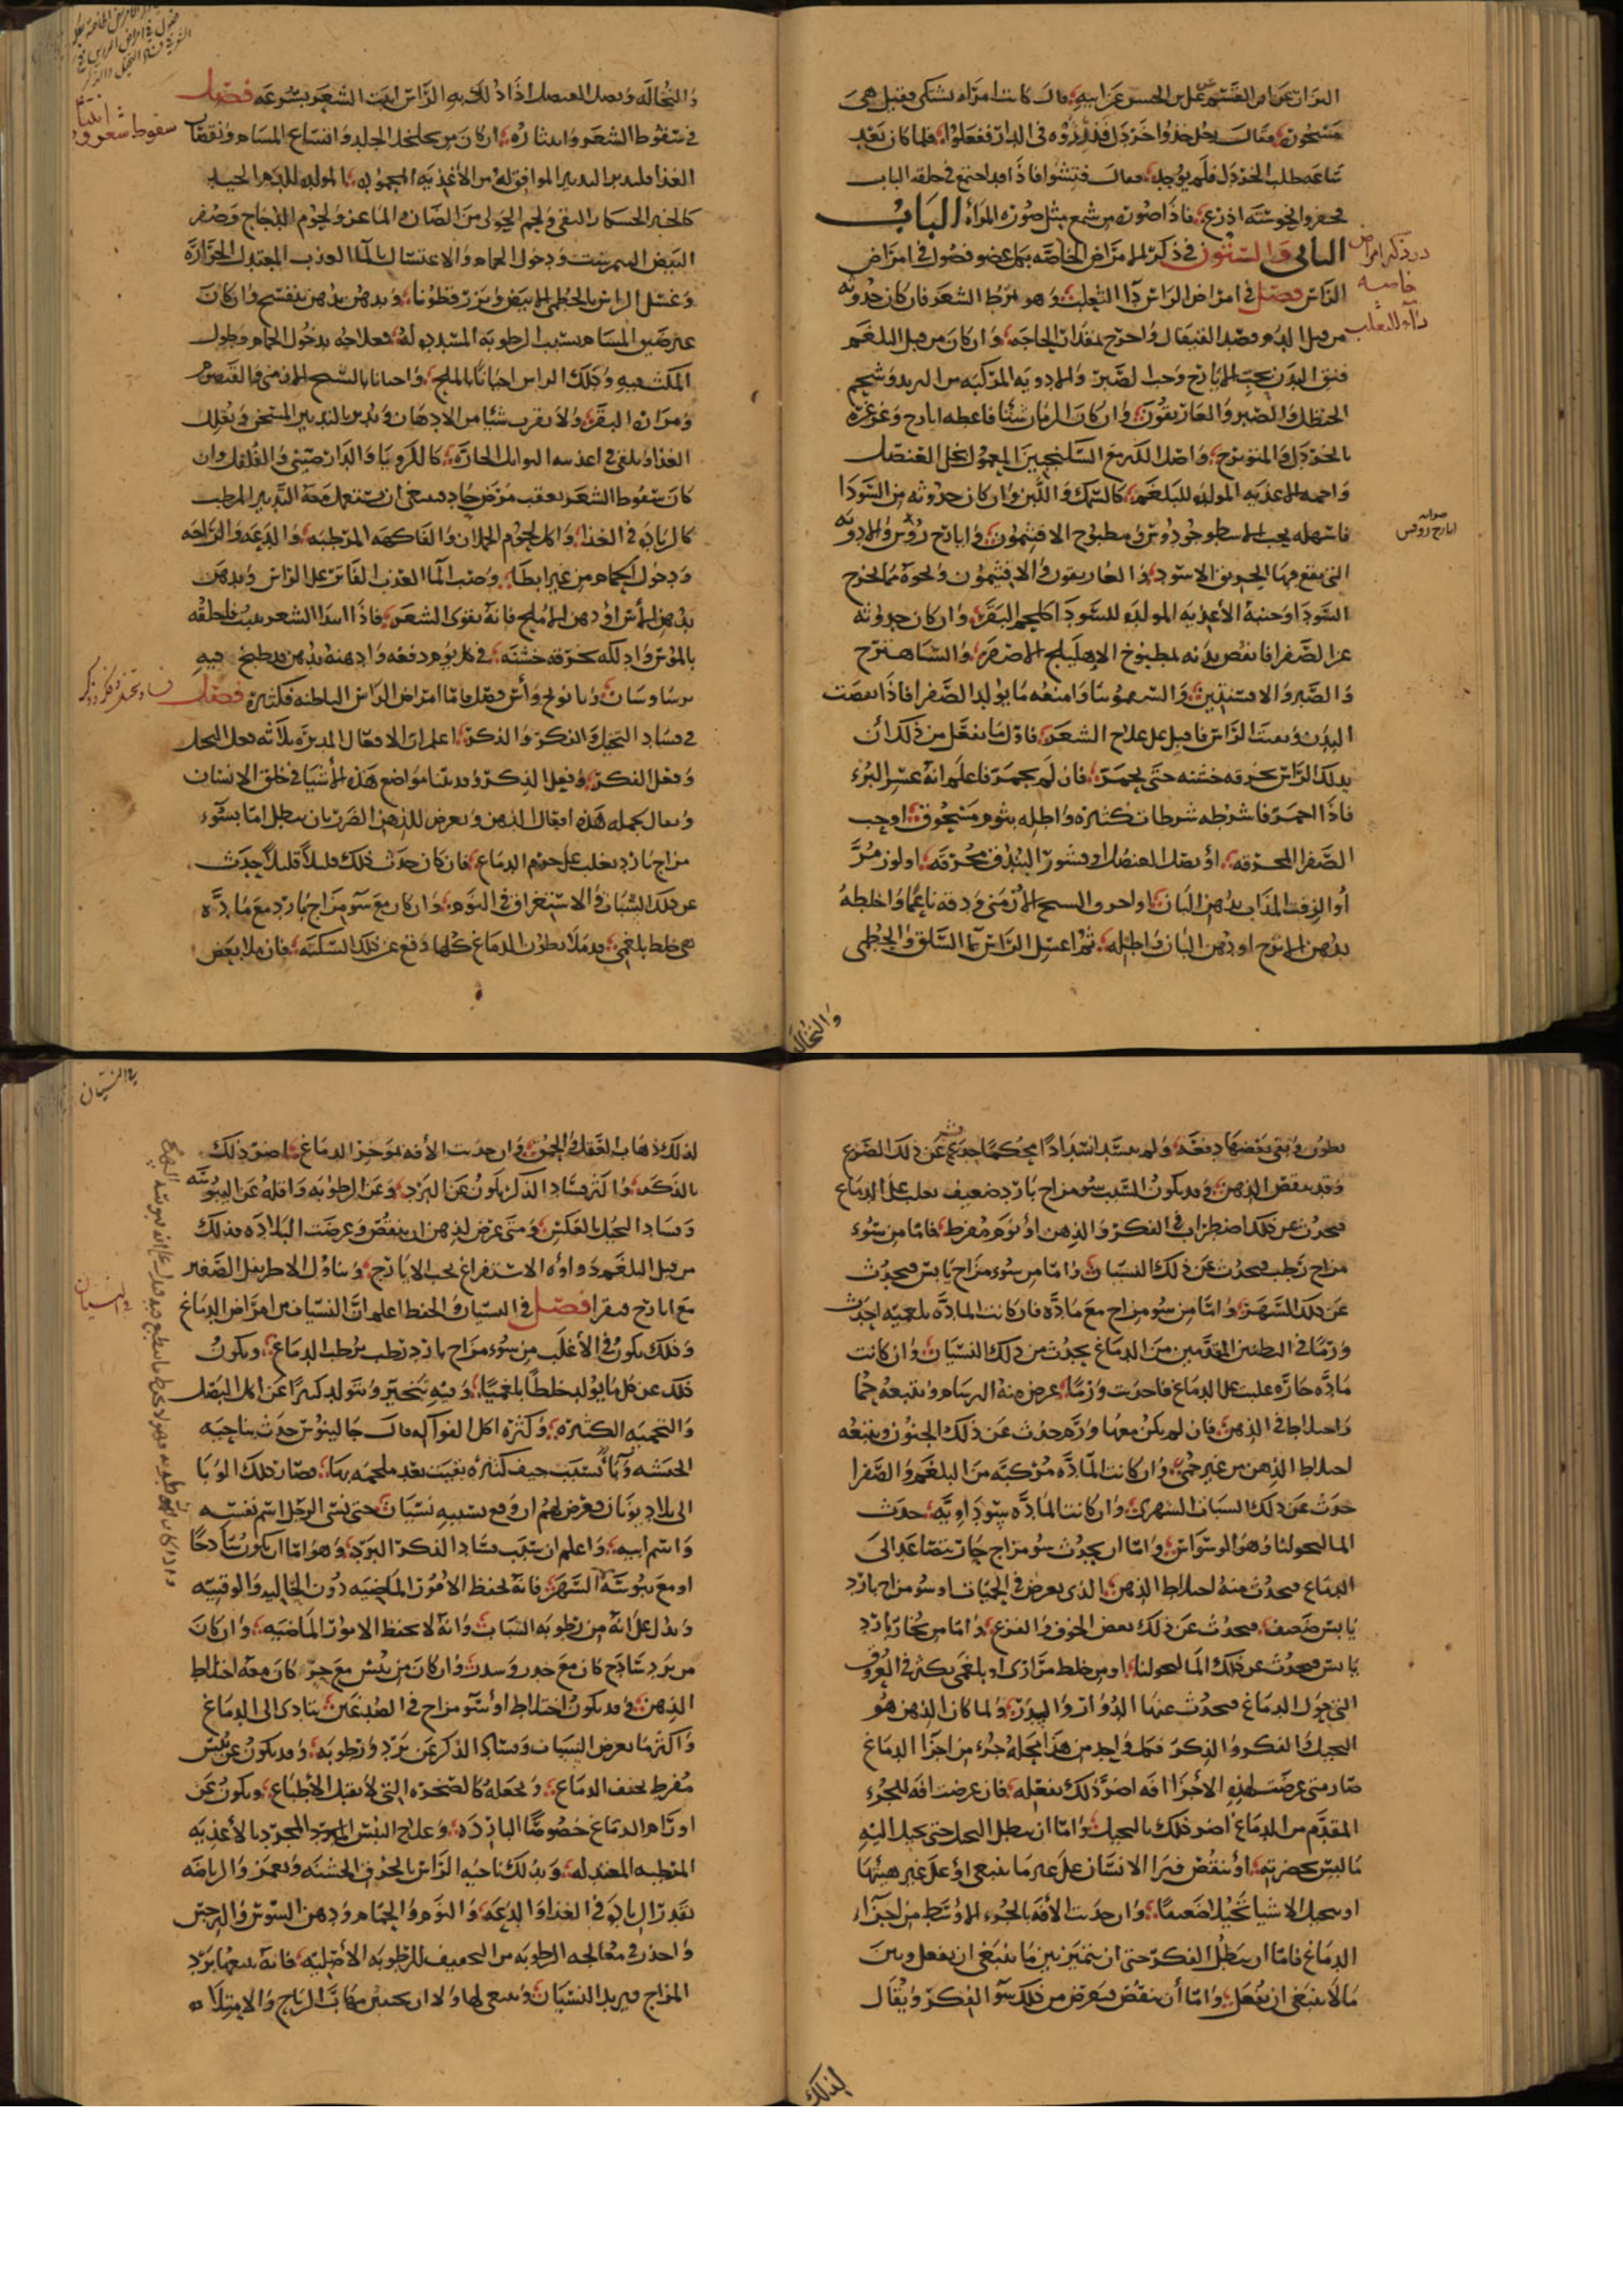 مسحون فقال رجل خذوا خردل فذروه في الدار ففعلوا فلما كان بعد
ساعه طلب الخردل فلم يوجد فقال فتشوا فاذا قد اجتمع في حلقه الباب
فاذا صوره من شمع مثل صوره المرأه الباب
الثاني والستون في ذكر الامراض الخاصه بكل عضو فصول في امراض
الراس فصل في امراض الراس داء الثعلب وهو تمرط الشعر فان كان حدوثه
من قبل الدم فصد القيفال واخرج بمقدار الحاجه وان كان من قبل البلغم
فنق البدن بحب الايارج وحب الصبر والادويه المركبه من التربد وشحم
الحنظل والصبر والغاريقون وان كان الزمان شتا فاعطه ايارج وغرغره
بالخردل والمويزج واصل الكبر مع السكنجبين المعمول بخل العنصل
واحمه الاغذيه المولده للبلغم كالسمك واللبن وان كان حدوثه من السودا
فاسهله بحب الاسطوخودوس ومطبوخ الافتيمون وايارج روفس والادويه
التي يقع فيها الخربق الاسود والغاريقون والافتيمون ونحوه مما يخرج
السودا وجنبه الأغذيه المولده للسودا كلحم البقر وان كان حدوثه
عن الصفرا فانفض بدنه بمطبوخ الاهليلج الاصفر والشاهترج
والصبر والافسنتين والسقمونيا وامنعه ما يولد الصفرا فاذا نقيت
البدن ونقيت الراس فاقبل على علاج الشعر فاول ما تفعل من ذلك أن
يدلك الراس بخرقه خشنه حتى يحمر فان لم يحمر فاعلم انه عسر البرء
فاذا احمر فاشرطه شرطات كثيره واطله بثوم مسحوق
المحرقه او بصل العنصل او قشور البندق محرقه او لوز مر
أو الزفت المذاب بدهن البان او احرق الشيح الأرمني ودقه ناعما واخلطه
بدهن او دهن البان واطله ثم اغسل الراس بما السلق والخطمي
والنخاله
والنخاله وبصل العنصل اذا دلك به الراس انبت الشعر بسرعه فصل
في سقوط الشعر وانتثاره ان كان من تخلخل الجلد واتساع المسام ونقصان
الغذا فليدبر التدبير الموافق له من الأغذيه المحموده المولده للدم الجيد
كالخبز الخشكار النقي ولحم الحولى من الضان والماعز ولحوم الدجاج وصفر
البيض النيمرشت ودخول الحمام والاغتسال بالماء العذب المعتدل الحراره
وغسل الراس بالخطمي الابيض وبزر قطونا ويدهن بدهن بنفسج وان كان
عن ضيق المسام بسبب الرطوبه المسدده له فعلاجه بدخول الحمام وطول
المكث فيه ودلك الراس احيانا بالملح واحيانا بالشيح الارمني والقيصوم
ومراره البقر ولا يقرب شيئا من الادهان ويدبر بالتدبير المسخن ويقلل
الغذا ويلقى في اغذيته التوابل الحاره كالكرويا والدارصيني والفلفل وان
كان سقوط الشعر بعقب مرض حاد فينبغي ان يستعمل معه التدبير المرطب
كالزياده في الغذا واكل لحوم الحملان والفاكهه المرطبه والدعه والراحه
ودخول الحمام من غير ابطا وصب الما العذب الفاتر على الراس ويدهن
بدهن الأس او دهن الاملج فانه يقوى الشعر فاذا ابتدا الشعر ينبت فاحلقه
بالموس وادلكه بخرقه خشنه في كل يوم دفعه وادهنه بدهن قد طبخ فيه
برسياوشان فصل فاما امراض الراس الباطنه فكثيره فصل
في فساد التخيل والفكر والذكر اعلم ان الافعال المدبره ثلاثه فعل التخيل
وفعل الفكر وفعل الذكر وقد بينا مواضع هذه الأشيا في خلق الانسان
ويقال بجمله هذه افعال الذهن ويعرض للذهن الضرر بان يبطل اما بسوء
مزاج بارد يغلب على جرم الدماغ فان كان حدث ذلك قليلا قليلا حدث
عن ذلك السبات والاستغراق في النوم وان كان مع سوء مزاج بارد مع ماده
هي خلط بلغمي قد ملا بطون الدماغ كلها دفع عن ذلك السكته فان ملا بعض
سقوط شعر و انتثار
در ذكر امراض
خاصه
داء الثعلب
صوابه
ايارج روفس
فساد تخيل و فكر و ذكر
بطون وبقى بعضها دفعه ولم يستد استدادا محكما حدث عن ذلك الصرع
وقد ينقص الذهن وقد يكون السبب سوء مزاج بارد ضعيف يغلب على الدماغ
فيحدث عن ذلك اضطراب في الفكر والذهن او نوم مفرط فاما من سوء
مزاج رطب فيحدث عن ذلك النسيان واما من سوء مزاج يابس فيحدث
عن ذلك السهر واما من سوء مزاج مع ماده فان كانت الماده بلغميه احدث
ورما في البطنين المقدمين من الدماغ يحدث من ذلك النسيان وان كانت
ماده حاره غلبت على الدماغ فاحدثت ورما عرض منه البرسام ويتبعه حما
واختلاط في الذهن فان لم يكن معها ورم حدث عن ذلك الجنون ويتبعه
اختلاط الذهن من غير حمى وان كانت الماده مركبه من البلغم والصفرا
حدث عن ذلك السبات السهري وان كانت الماده سوداويه حدث
الماليخوليا وهو الوسواس واما ان يحدث سوء مزاج حار يتصاعد الى
الدماغ فيحدث منه اختلاط الذهن الذي يعرض في الحميات او سوء مزاج بارد
يابس ضعيف فيحدث عن ذلك بعض الخوف والفزع واما من بخار بارد
يابس فيحدث عن ذلك الماليخوليا او من خلط مرارى او بلغمي يكثر في العروق
التي حول الدماغ فيحدث عنها الدوار والسدر ولما كان الذهن هو
التخيل والفكر والذكر فكل واحد من هذا محله جزء من اجزا الدماغ
صار متى عرضت لهذه الأجزا افه اضر ذلك بفعله فان عرضت افه للجزء
المقدم من الدماغ اضر ذلك بالتخيل واما ان يبطل التخيل حتى يخيل اليه
ما ليس بحضرته او ينقص فيرا الانسان على غير ما ينبغي او على غير هيئتها
او يتخيل الاشيا تخيلا ضعيفا وان حدثت الأفه بالجزء الاوسط من اجزاء
الدماغ فاما ان يبطل الفكر حتى ان يتميز بين ما ينبغي ان يفعل وبين
ما لا ينبغي ان يفعل واما أن ينقص فيعرض من ذلك سوء الفكر ويقال
لذلك
في النسيان
لذلك ذهاب العقل والحمق وان حدثت الأفه بموخر الدماغ اضر ذلك
بالذكر واكثر فساد الذكر يكون عن البرد وعن الرطوبه واقله عن اليبوسه
وفساد التخيل بالعكس ومتى عرض للذهن ان ينقص وعرضت البلاده فذلك
من قبل البلغم دواوه الاستفراغ بحب الايارج وتناول الاطريفل الصغير
مع ايارج فيقرا فصل في النسيان والحفظ اعلم ان النسيان من امراض الدماغ
وذلك يكون في الأغلب من سوء مزاج بارد رطب يرطب الدماغ ويكون
ذلك عن كل ما يولد خلطا بلغميا وفيه تبخير ويتولد كثيرا عن اكل البصل
والتخمه الكثيره وكثره اكل الفواكه قال جالينوس حدث بناحيه
الحبشه وبا بسبب جيف كثيره بقيت بعد ملحمه بها فصار ذلك الوبا
الى بلاد يونان فعرض لهم ان وقع بسببه نسيان حتى نسى الرجل اسم نفسه
واسم ابيه واعلم ان سبب فساد الفكر البرد وهو اما ان يكون ساذجا
او مع يبوسه السهر فانه يحفظ الأمور الماضيه دون الحاليه والوقتيه
ويدل على انه من رطوبه السبات وانه لا يحفظ الامور الماضيه وان كان
من برد ساذج كان مع خدر وسدر وان كان من يبس مع حر كان معه اختلاط
الذهن وقد يكون اختلاط او سوء مزاج في الصدغين يتادى الى الدماغ
واكثر ما يعرض النسيان وفساد الذكر عن برد ورطوبه وقد يكون عن يبس
مفرط يجفف الدماغ ويجعله كالصخره التي لا تقبل الأطباع ويكون عن
اورام الدماغ خصوصا البارده وعلاج اليبس المجرد بالأغذيه
المرطبه المعتدله ويدلك ناحيه الراس بالخرق الخشنه ويغمز والرياضه
بقدر الزياده في الغذا والدعه والنوم والحمام ودهن السوسن والنرجس
واحذر في معالجه الرطوبه من التجفيف للرطوبه الأصليه فانه يتبعها برد
المزاج فيزيد النسيان وينبغي لها ولا ان يجتنب مهاب الرياح والامتلاء
في النسيان